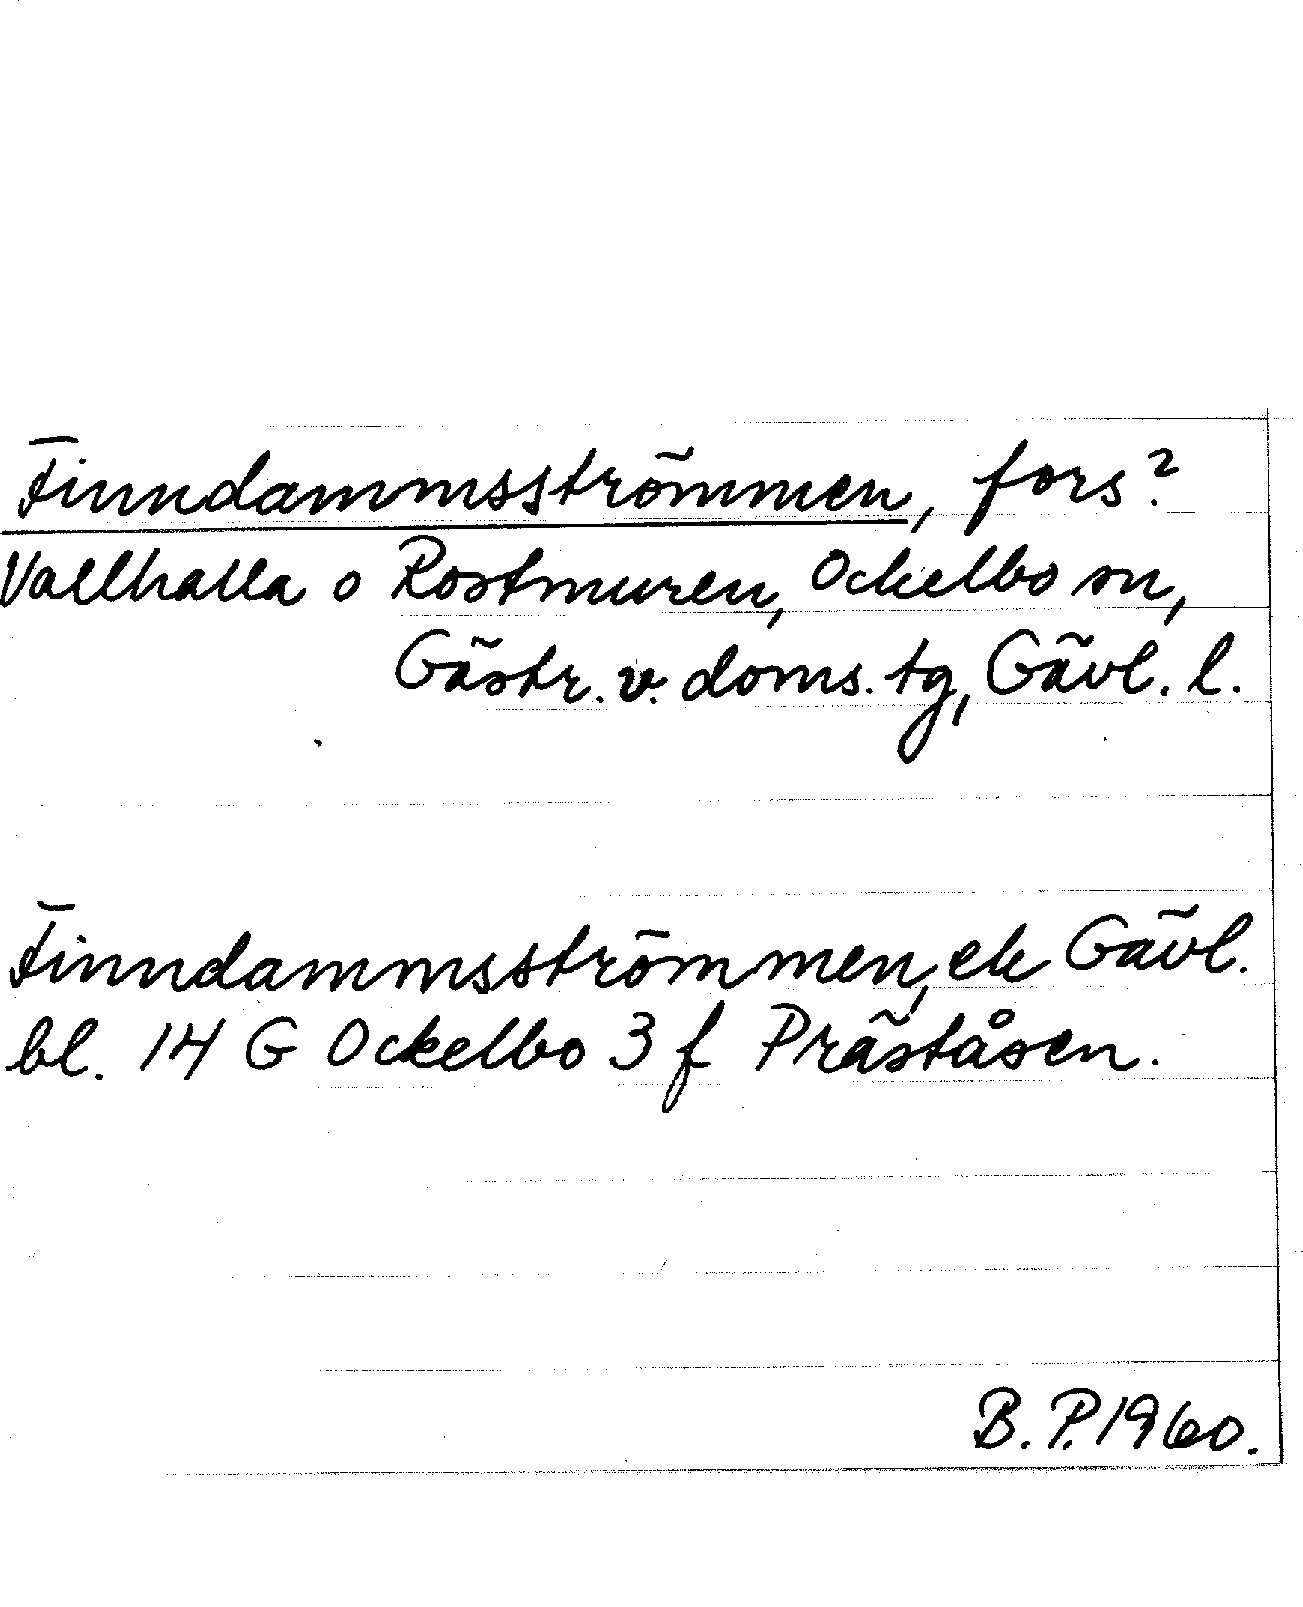 Finndammsströmmen, fors?
Vallhalla o Rostmuren, Ockelbo sn,
Gästr. v. doms. tg, Gävl. l.
Finndammsströmmen, ek Gävl.
bl. 14 G Ockelbo 3 f Präståsen.
B. P. 1960.